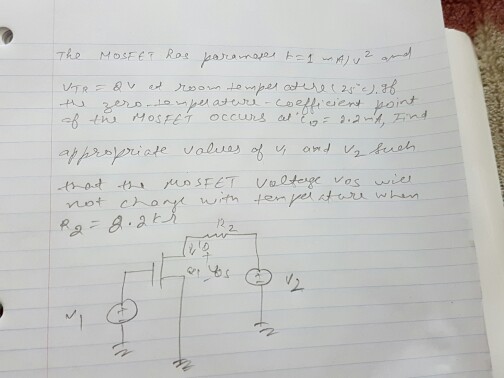 The MOSFET has parameter k=1 mA/V² and
VTR = 2V at room temperature (25°c). If
the zero-temperature-coefficient point
of the MOSFET occurs at iD = 2.2mA, Find
appropriate values of V1 and V2 such
that the MOSFET voltage VDS will
not change with temperature when
R2 = 2.2kΩ
R2
iD
+
VDS
-
V1
+
V2